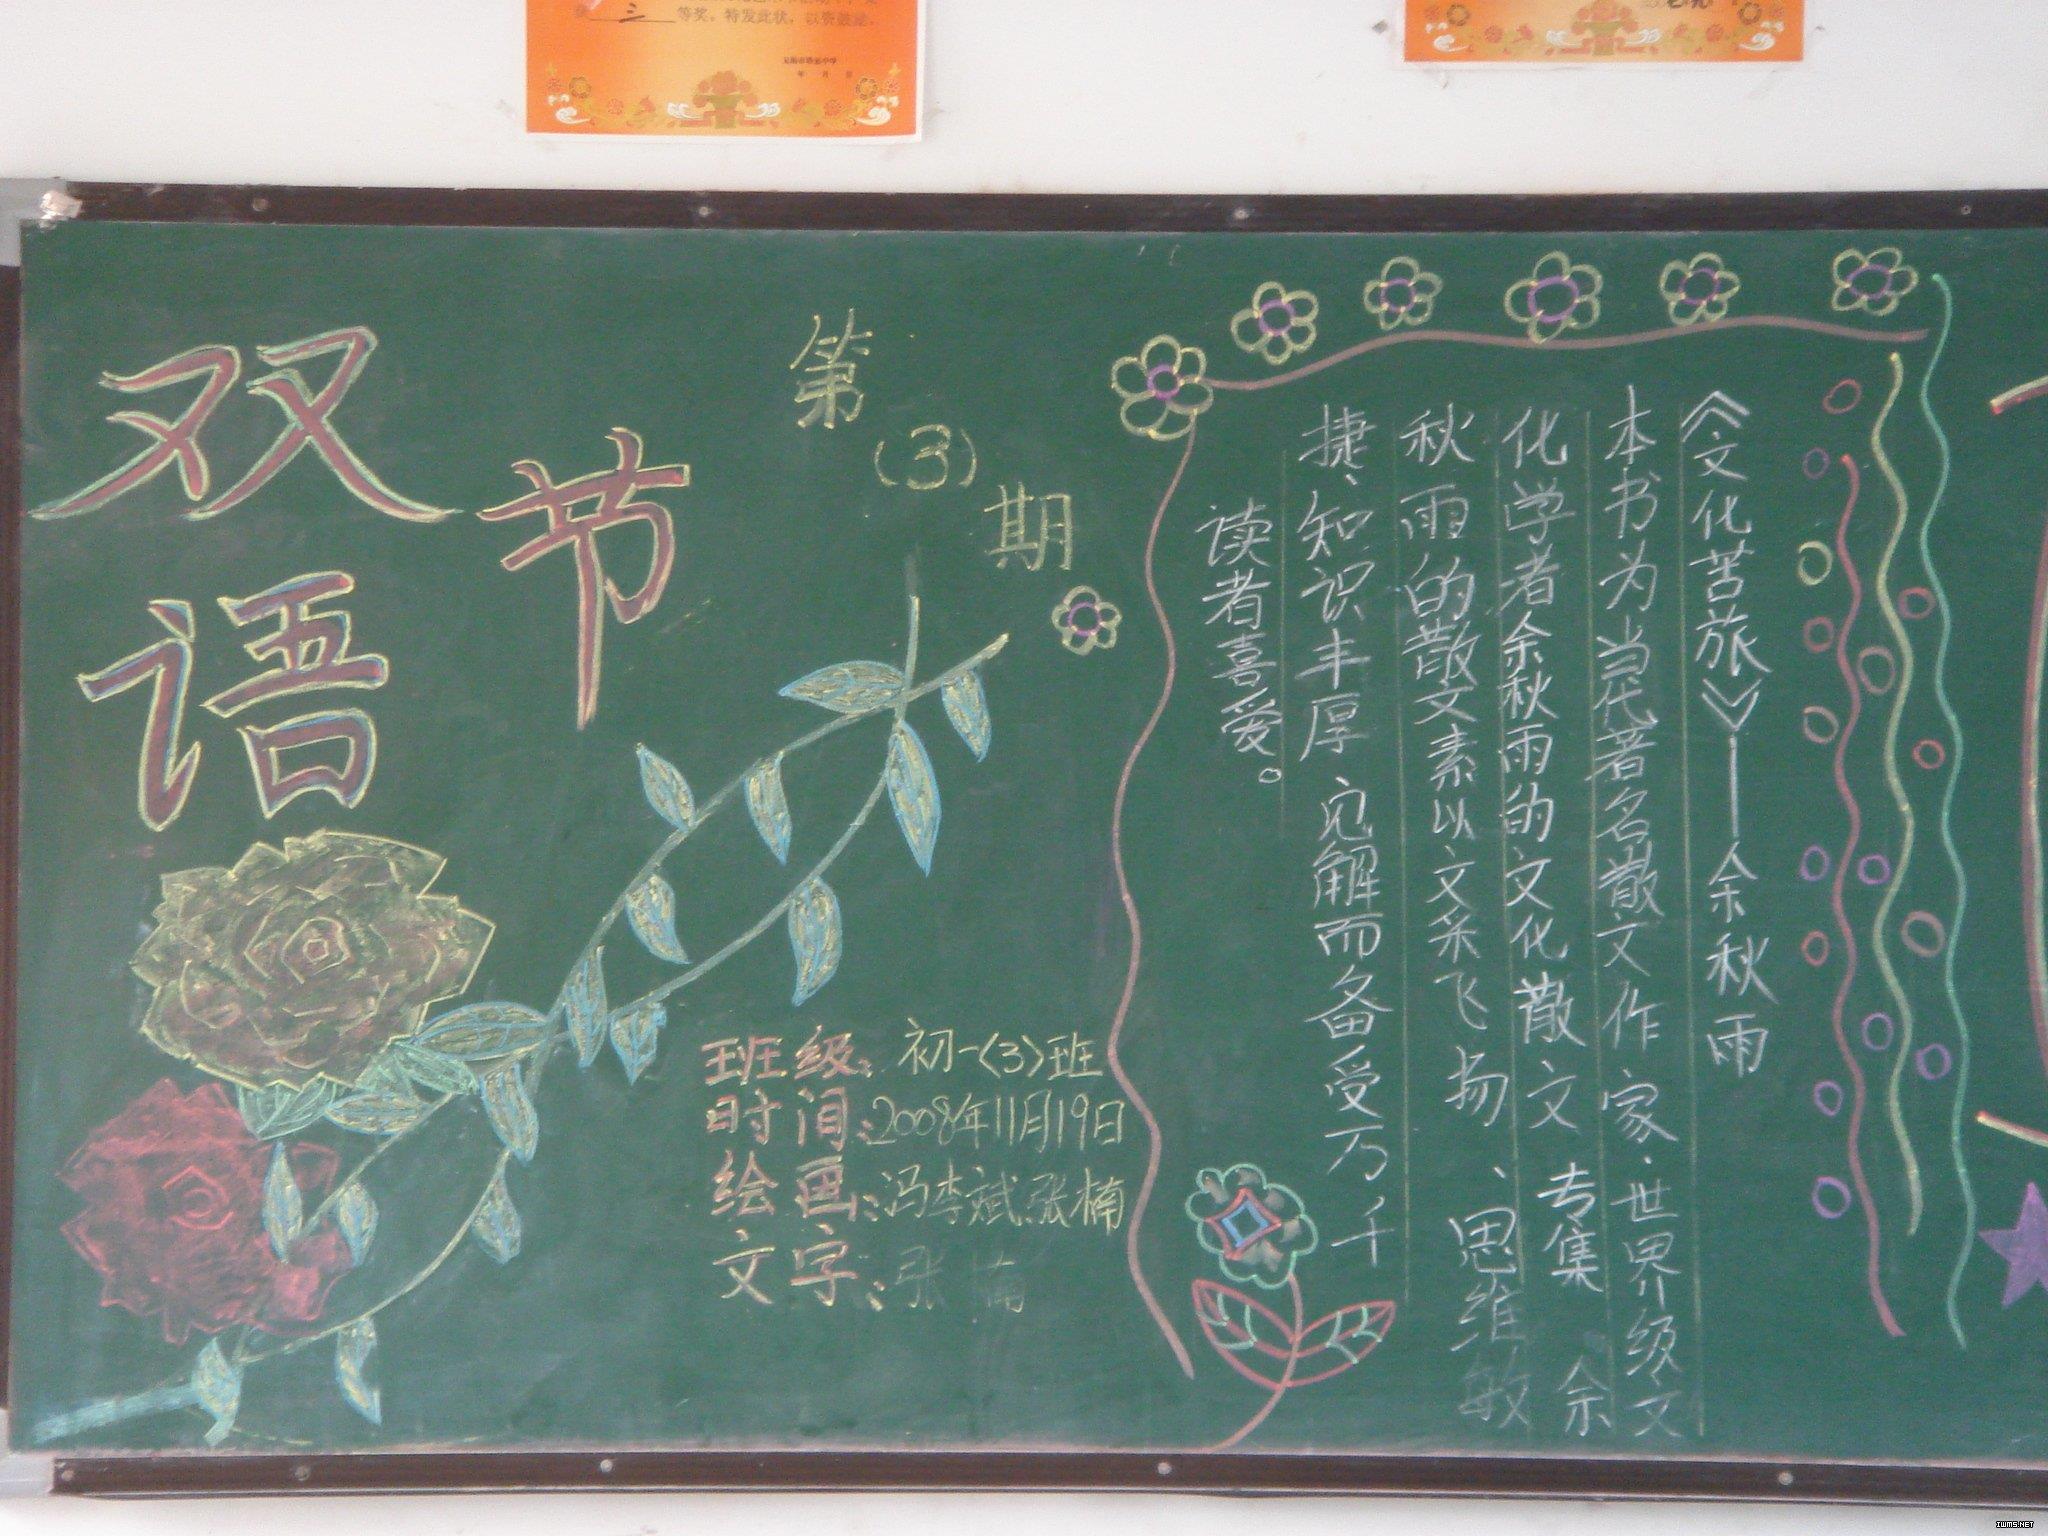 三
等奖。特发此状，以资鼓励。
年 月 日
双语节
第(3)期
班级：初一〈3〉班
时间：2008年11月19日
绘画：冯李斌 张楠
文字：张楠
《文化苦旅》——余秋雨
本书为当代著名散文作家、世界级文
化学者余秋雨的文化散文专集、余
秋雨的散文素以文采飞扬、思维敏
捷、知识丰厚、见解而备受万千
读者喜爱。
IWMS.NET